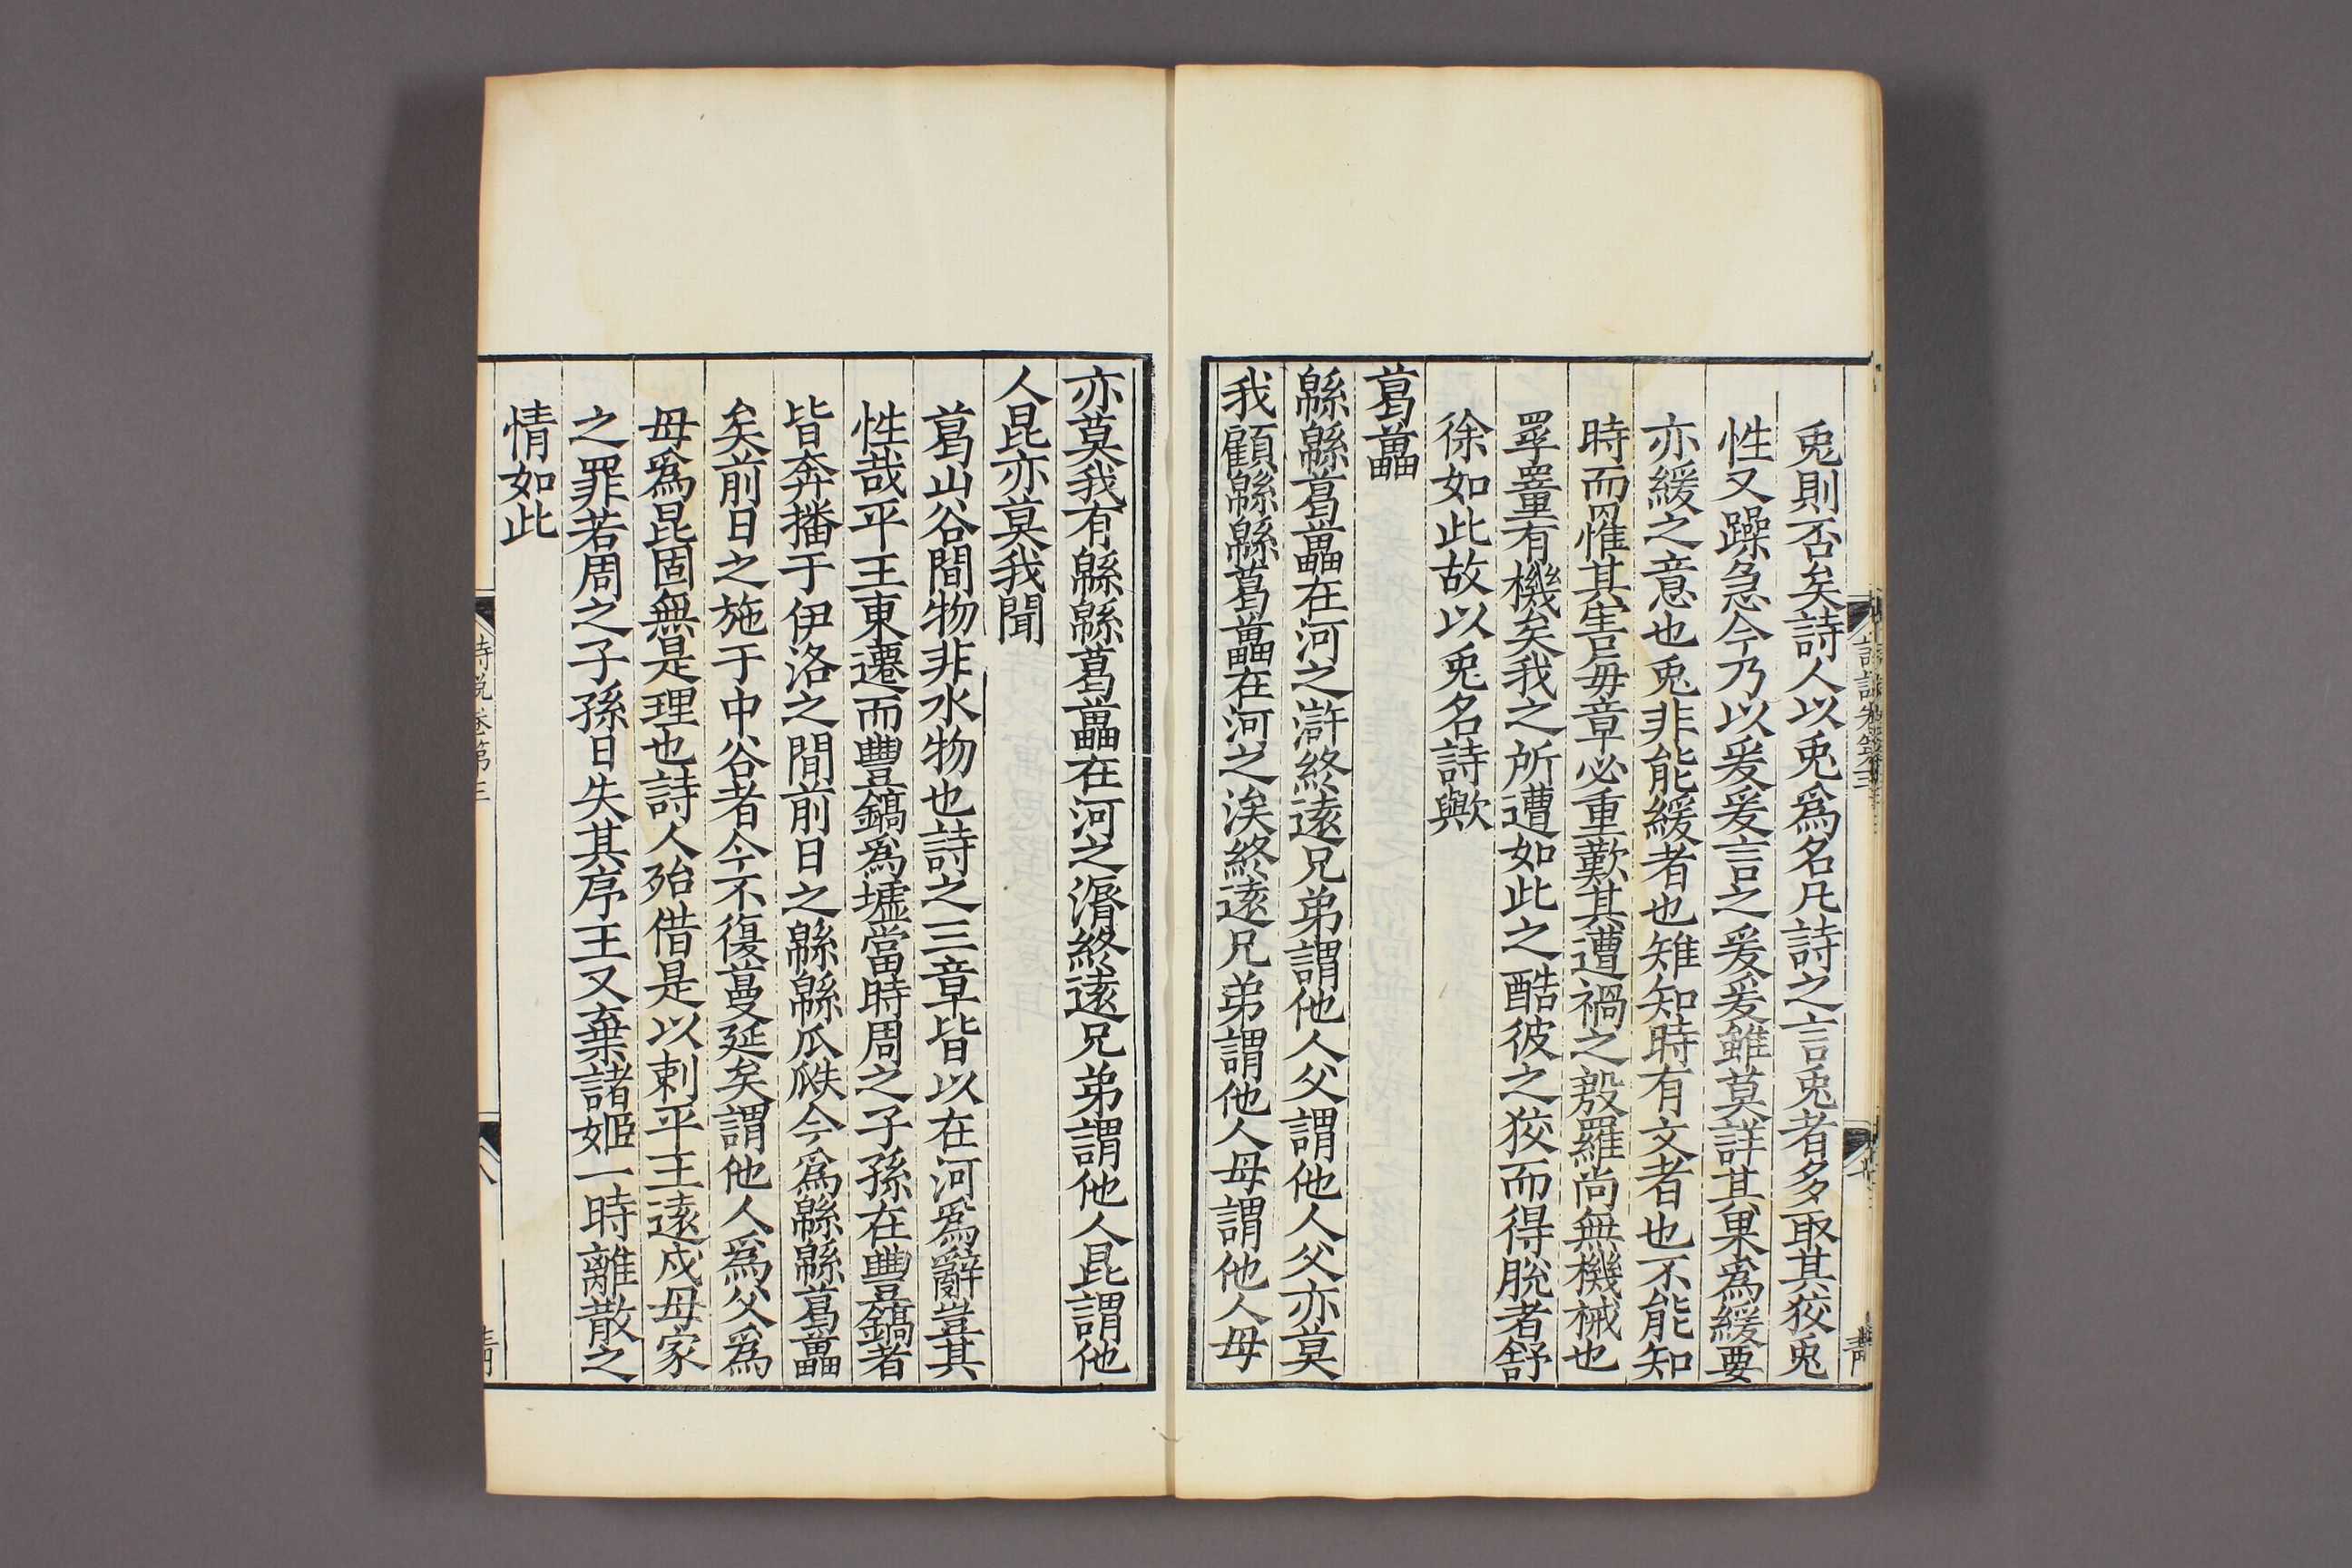 兎則否矣詩人以兎爲名凡詩之言兎者多取其狡兎
性又躁急今乃以爰爰言之爰爰雖莫詳其果爲緩要
亦緩之意也兎非能緩者也雉知時有文者也不能知
時而罹其害毎章必重歎其遭禍之慤羅尚無機械也
罦罿有機矣我之所遭如此之酷彼之狡而得脫者舒
徐如此故以兎名詩歟
葛藟
緜緜葛藟在河之滸終逺兄弟謂他人父謂他人父亦莫
我顧緜緜葛藟在河之涘終逺兄弟謂他人母謂他人母
亦莫我有緜緜葛藟在河之漘終逺兄弟謂他人昆謂他
人昆亦莫我聞
葛山谷間物非水物也詩之三章皆以在河爲辭豈其
性哉平王東遷而豐鎬爲墟當時周之子孫在豐鎬者
皆奔播于伊洛之間前日之緜緜瓜瓞今爲緜緜葛藟
矣前日之施于中谷者今不復蔓延矣謂他人爲父爲
母爲昆固無是理也詩人殆借是以刺平王逺戍母家
之罪若周之子孫日失其序王又棄諸姬一時離散之
情如此
詩說卷第三